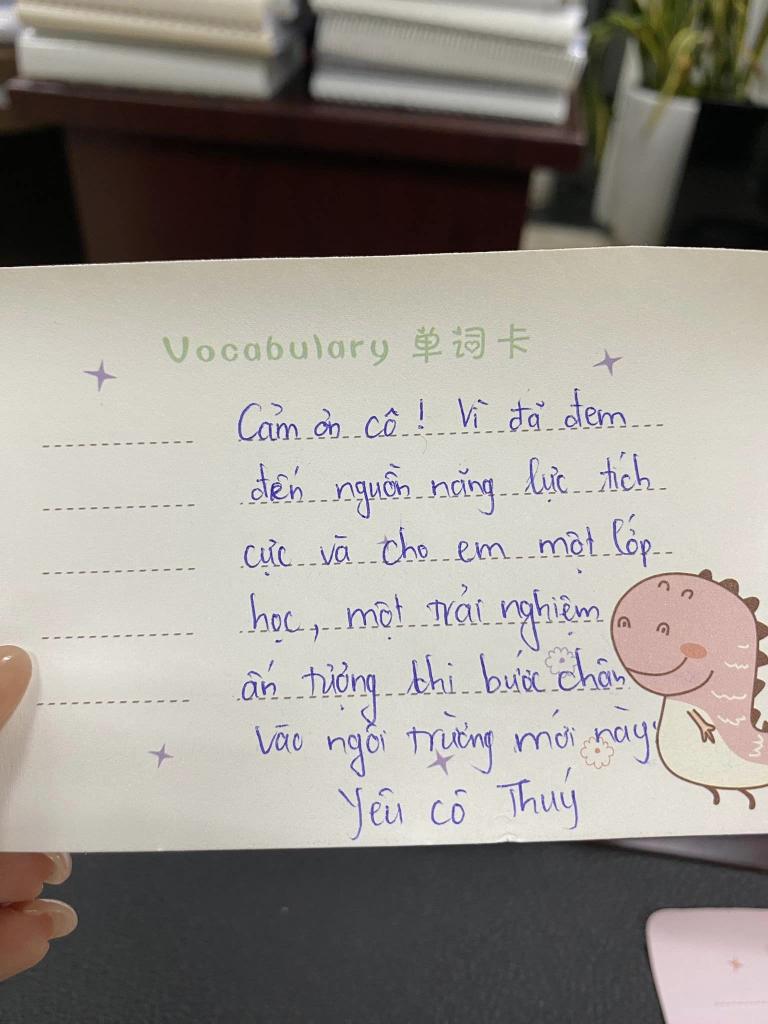 Vocabulary 单词卡
Cảm ơn cô! Vì đã đem
đến nguồn năng lực tích
cực và cho em một lớp
học, một trải nghiệm
ấn tượng khi bước chân
vào ngôi trường mới này
Yêu cô Thuý